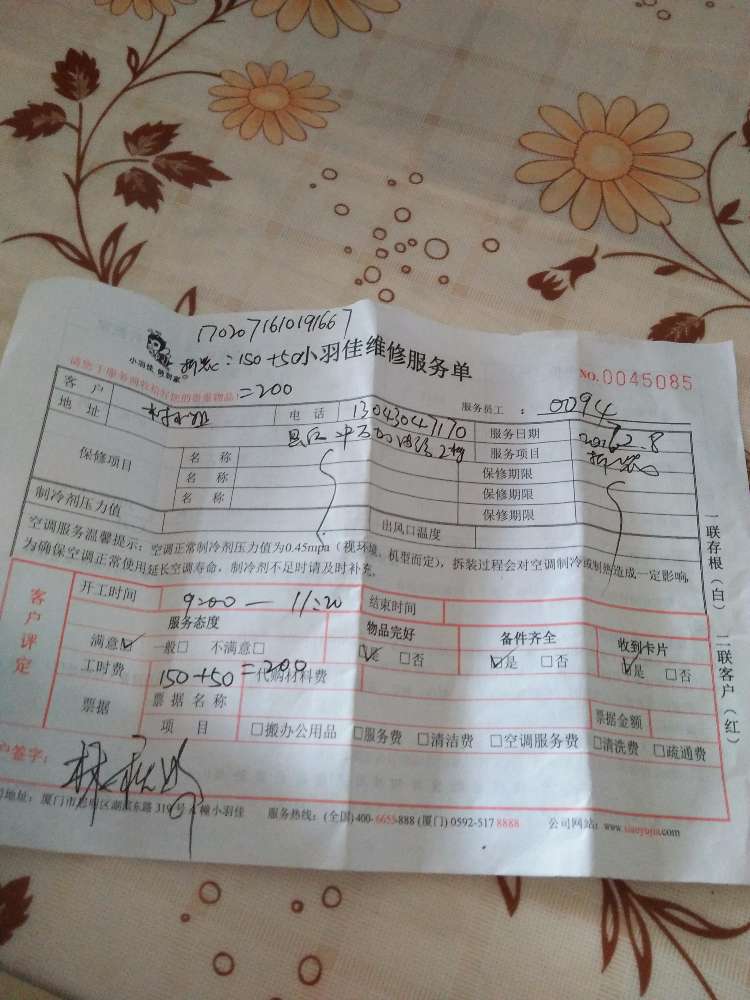 17020716101916 67
小羽佳 做到家
拆装c：150+50 小羽佳维修服务单
=200
NO.0045085
客户 电话 13043047170 服务员工：0094
地址 服务日期 2.8
保修项目 名称 服务项目 拆装
名称 保修期限
名称 保修期限
保修期限
制冷剂压力值 出风口温度
空调服务温馨提示：空调正常制冷剂压力值为0.45mpa（视环境、机型而定），拆装过程会对空调制冷或制热造成一定影响，
为确保空调正常使用延长空调寿命，制冷剂不足时请及时补充。
一联存根（白） 二联客户（红）
客户评定
开工时间 9:00—11:20 结束时间
服务态度 物品完好 备件齐全 收到卡片
满意☑ 一般□ 不满意□ ☑是 □否 ☑是 □否 ☑是 □否
工时费 150+50=200 代购材料费
票据 票据名称 票据金额
项目 □搬办公用品 □服务费 □清洁费 □空调服务费 □清洗费 □疏通费
户签字：
地址：厦门市思明区湖滨东路319号A幢小羽佳 服务热线：(全国)400-6655-888 (厦门)0592-517 8888 公司网站：www.xiaoyujia.com